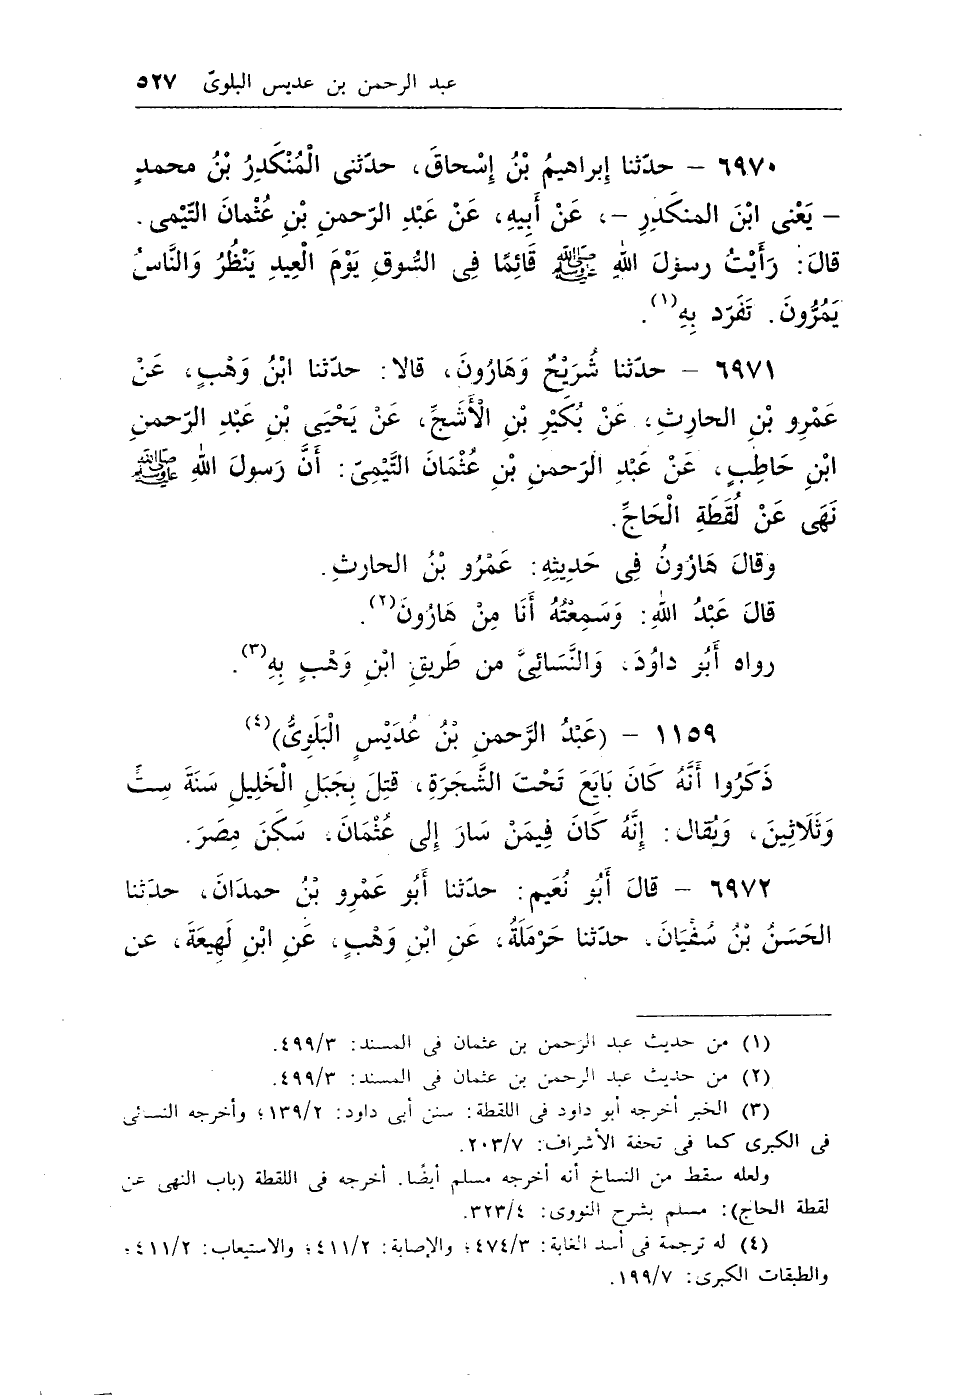 عبد الرحمن بن عديس البلوىّ ٥٢٧
٦٩٧٠ – حدّثنا إبراهيمُ بْنُ إسْحاقَ، حدّثنى الْمُنْكَدِرُ بْنُ محمدٍ
– يَعْنى ابْنَ المنكَدِرِ –، عَنْ أَبيهِ، عَنْ عَبْدِ الرّحمنِ بْنِ عُثْمانَ التّيْمى.
قالَ: رَأَيْتُ رسولَ اللهِ ﷺ قَائِمًا فِى السُّوقِ يَوْمَ الْعِيدِ يَنْظُرُ وَالنَّاسُ
يَمُرُّونَ. تَفَرّد بِهِ(١).
٦٩٧١ – حدّثنا سُرَيْجٌ وَهَارُونَ، قالا: حدّثنا ابْنُ وَهْبٍ، عَنْ
عَمْرِو بْنِ الحارِثِ، عَنْ بُكَيْرِ بْنِ الْأَشَجِّ، عَنْ يَحْيَى بْنِ عَبْدِ الرّحمنِ
ابْنِ حَاطِبٍ، عَنْ عَبْدِ الرّحمنِ بْنِ عُثْمَانَ التَّيْمِىّ: أنَّ رَسولَ اللهِ ﷺ
نَهَى عَنْ لُقَطَةِ الْحَاجِّ.
وقالَ هَارُونُ فِى حَدِيثِهِ: عَمْرُو بْنُ الحارثِ.
قالَ عَبْدُ اللهِ: وَسَمِعْتُهُ أنَا مِنْ هَارُونَ(٢).
رواه أَبُو داوُدَ، وَالنَّسَائِىَّ من طَريقِ ابْنِ وَهْبٍ بِهِ(٣).
١١٥٩ – (عَبْدُ الرَّحمنِ بْنُ عُدَيْسٍ الْبَلَوِىُّ)(٤)
ذَكَرُوا أنَّهُ كَانَ بَايَعَ تَحْتَ الشَّجَرَةِ، قتِلَ بِجَبَلِ الْخَلِيلِ سَنَةَ سِتٍّ
وَثَلَاثِينَ، وَيُقال: إنَّهُ كَانَ فِيمَنْ سَارَ إلى عُثْمَانَ، سَكَنَ مِصَرَ.
٦٩٧٢ – قالَ أَبُو نُعَيم: حدّثنا أَبُو عَمْرِو بْنُ حمدَانَ، حدّثنا
الحَسَنُ بْنُ سُفْيَانَ، حدّثنا حَرْمَلَةُ، عَنِ ابْنِ وَهْبٍ، عَنِ ابْنِ لَهِيعَةَ، عن
(١) من حديث عبد الرحمن بن عثمان فى المسند: ٤٩٩/٣.
(٢) من حديث عبد الرحمن بن عثمان فى المسند: ٤٩٩/٣.
(٣) الخبر أخرجه أبو داود فى اللقطة: سنن أبى داود: ١٣٩/٢؛ وأخرجه النسائى
فى الكبرى كما فى تحفة الأشراف: ٢٠٣/٧.
ولعله سقط من النساخ أنه أخرجه مسلم أيضًا. أخرجه فى اللقطة (باب النهى عن
لقطة الحاج): مسلم بشرح النووى: ٣٢٣/٤.
(٤) له ترجمة فى أسد الغابة: ٤٧٤/٣؛ والإصابة: ٤١١/٢؛ والاستيعاب: ٤١١/٢؛
والطبقات الكبرى: ١٩٩/٧.